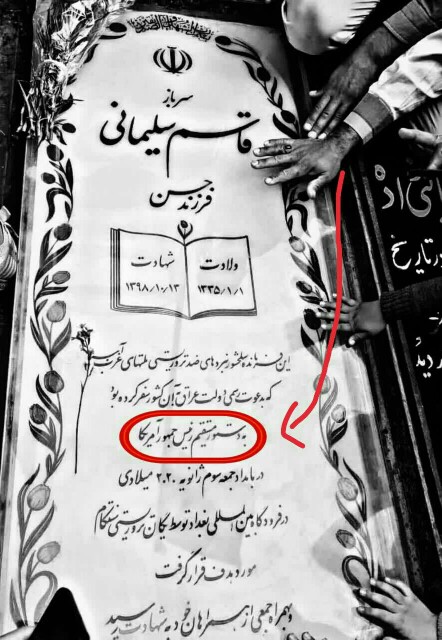 سرباز
قاسم سلیمانی
فرزند حسن
ولادت شهادت
۱۳۳۵/۱/۱ ۱۳۹۸/۱۰/۱۳
این فرمانده سلحشور نبردهای ضد تروریستی ملتهای غرب آسیا
که به دعوت رسمی دولت عراق به آن کشور سفر کرده بود
به دستور مستقیم رئیس جمهور آمریکا
در بامداد جمعه سوم ژانویه ۲۰۲۰ میلادی
در فرودگاه بین المللی بغداد توسط یگان تروریستی سنتکام
مورد هدف قرار گرفت
و به همراه جمعی از همراهان خود به شهادت رسید
در تاریخ